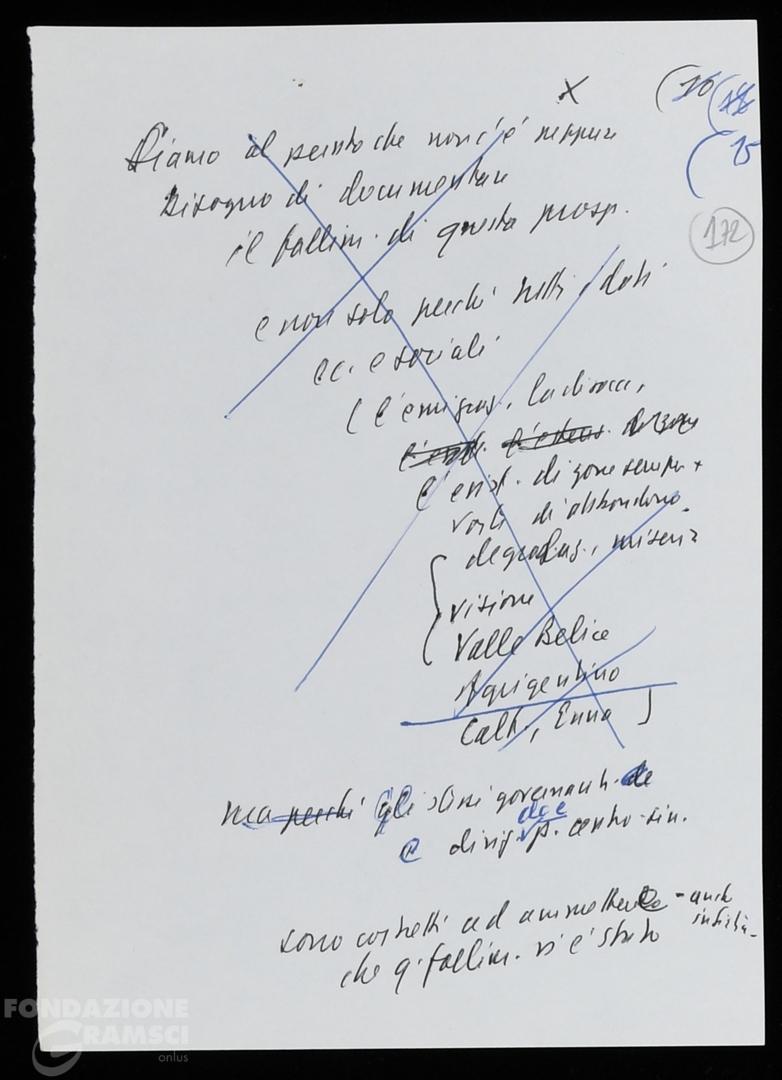 X
(16
15
172
Siamo al punto che non c'è neppure
bisogno di documentare
il fallim. di questa prosp.
e non solo perché tutti i dati
ec. e sociali
( l'emigraz., la disocc.,
l'esist. di zone sempre +
vaste di abbandono,
degradaz., miseria
visione
Valle Belice
Agrigentino
Calt., Enna )
ma perché gli stessi governanti de
e dirig. dei p. centro-sin.
sono costretti ad ammettere - anche
che q. fallim. vi è stato
FONDAZIONE
GRAMSCI
onlus